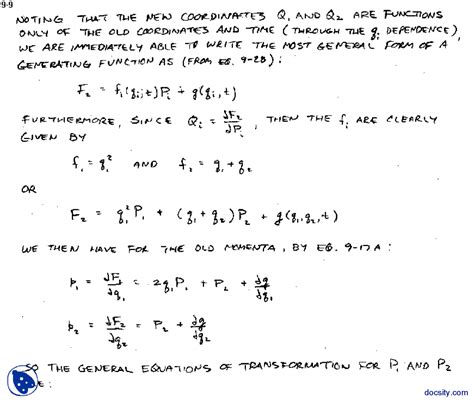 9-9
NOTING THAT THE NEW COORDINATES Q₁ AND Q₂ ARE FUNCTIONS
ONLY OF THE OLD COORDINATES AND TIME (THROUGH THE qᵢ DEPENDENCE),
WE ARE IMMEDIATELY ABLE TO WRITE THE MOST GENERAL FORM OF A
GENERATING FUNCTION AS (FROM EQ. 9-28):
F₂ = fᵢ(qⱼ;t)Pᵢ + g(qᵢ,t)
FURTHERMORE, SINCE Qᵢ = ∂F₂/∂Pᵢ, THEN THE fᵢ ARE CLEARLY
GIVEN BY
f₁ = q₁² AND f₂ = q₁ + q₂
OR
F₂ = q₁²P₁ + (q₁ + q₂)P₂ + g(q₁,q₂,t)
WE THEN HAVE FOR THE OLD MOMENTA, BY EQ. 9-17A:
p₁ = ∂F₂/∂q₁ = 2q₁P₁ + P₂ + ∂g/∂q₁
p₂ = ∂F₂/∂q₂ = P₂ + ∂g/∂q₂
SO THE GENERAL EQUATIONS OF TRANSFORMATION FOR P₁ AND P₂
docsity.com